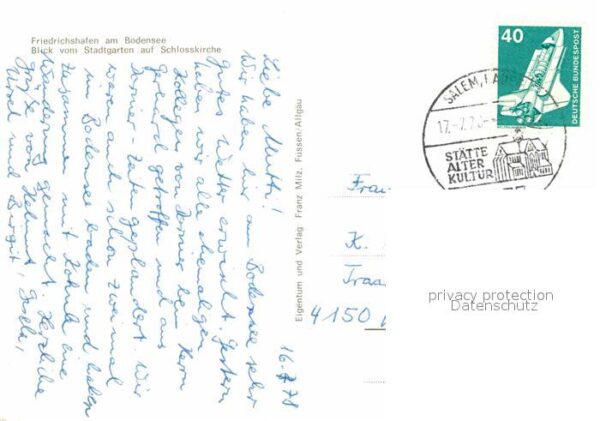 Friedrichshafen am Bodensee
Blick vom Stadtgarten auf Schlosskirche
16.7.78
Liebe Mutti!
Wir haben hier am Bodensee sehr
gutes Wetter erwischt. Gestern
haben wir alle ehemaligen
Kollegen von Dornier beim Herrn
getroffen und aus
Dornier-Zeiten geplaudert. Wir
waren auch schon zweimal
im Bodensee baden und haben
zusammen mit eine
Wanderung gemacht. Herzliche
Grüße von
Ursel und Birgit,
Eigentum und Verlag Franz Milz, Füssen/Allgäu
40
DEUTSCHE BUNDESPOST
SALEM,
STÄTTE
ALTER
KULTUR
Frau
K.
Traa
4150
privacy protection
Datenschutz